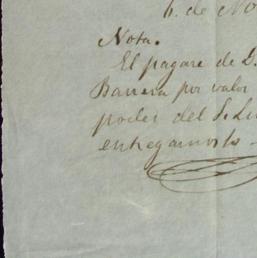 6. de No
Nota.
El pagare de D.
Barrera por valor
poder del S. Lu
entregarnoslo